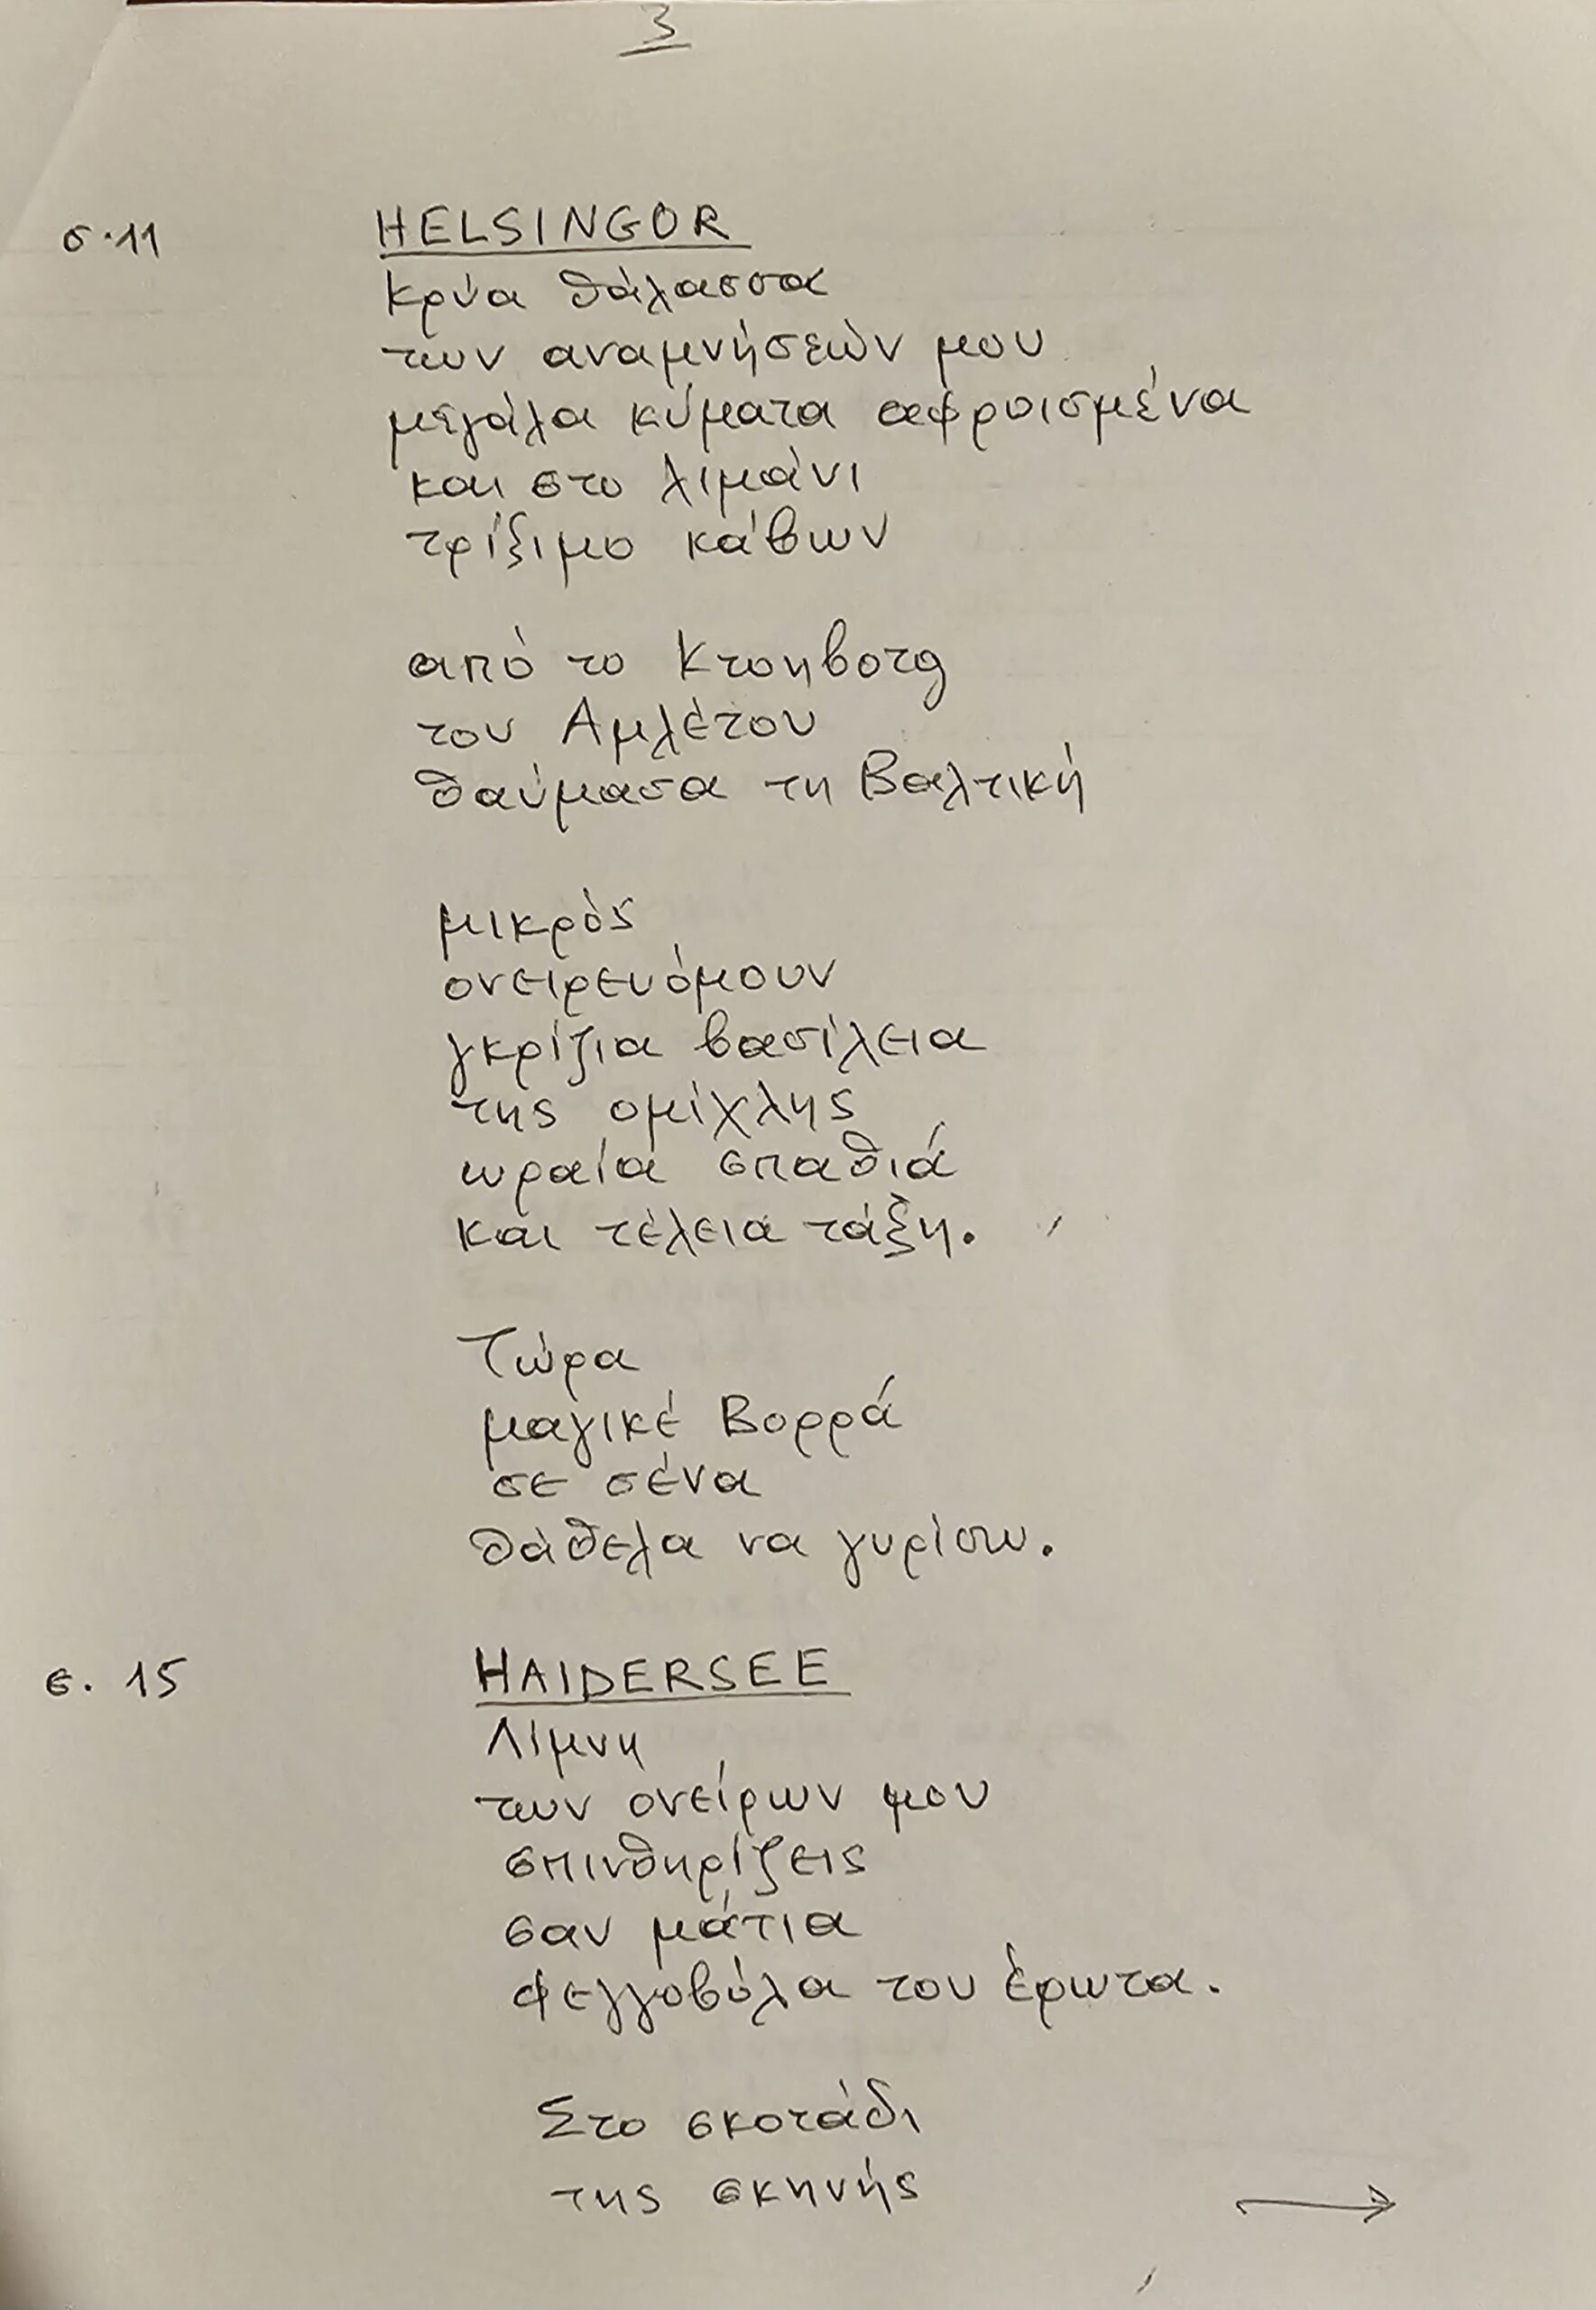 3
σ. 11 HELSINGOR
Κρύα θάλασσα
των αναμνήσεών μου
μεγάλα κύματα αφροισμένα
και στο λιμάνι
τρίξιμο κάβων
από το Kronborg
του Αμλέτου
θαύμασα τη Βαλτική
μικρός
ονειρευόμουν
γκρίζια βασίλεια
της ομίχλης
ωραία σπαθιά
και τέλεια τάξη.
Τώρα
μαγικέ Βορρά
σε σένα
θάθελα να γυρίσω.
σ. 15 HAIDERSEE
Λίμνη
των ονείρων μου
σπινθηρίζεις
σαν μάτια
φεγγοβόλα του έρωτα.
Στο σκοτάδι
της σκηνής →